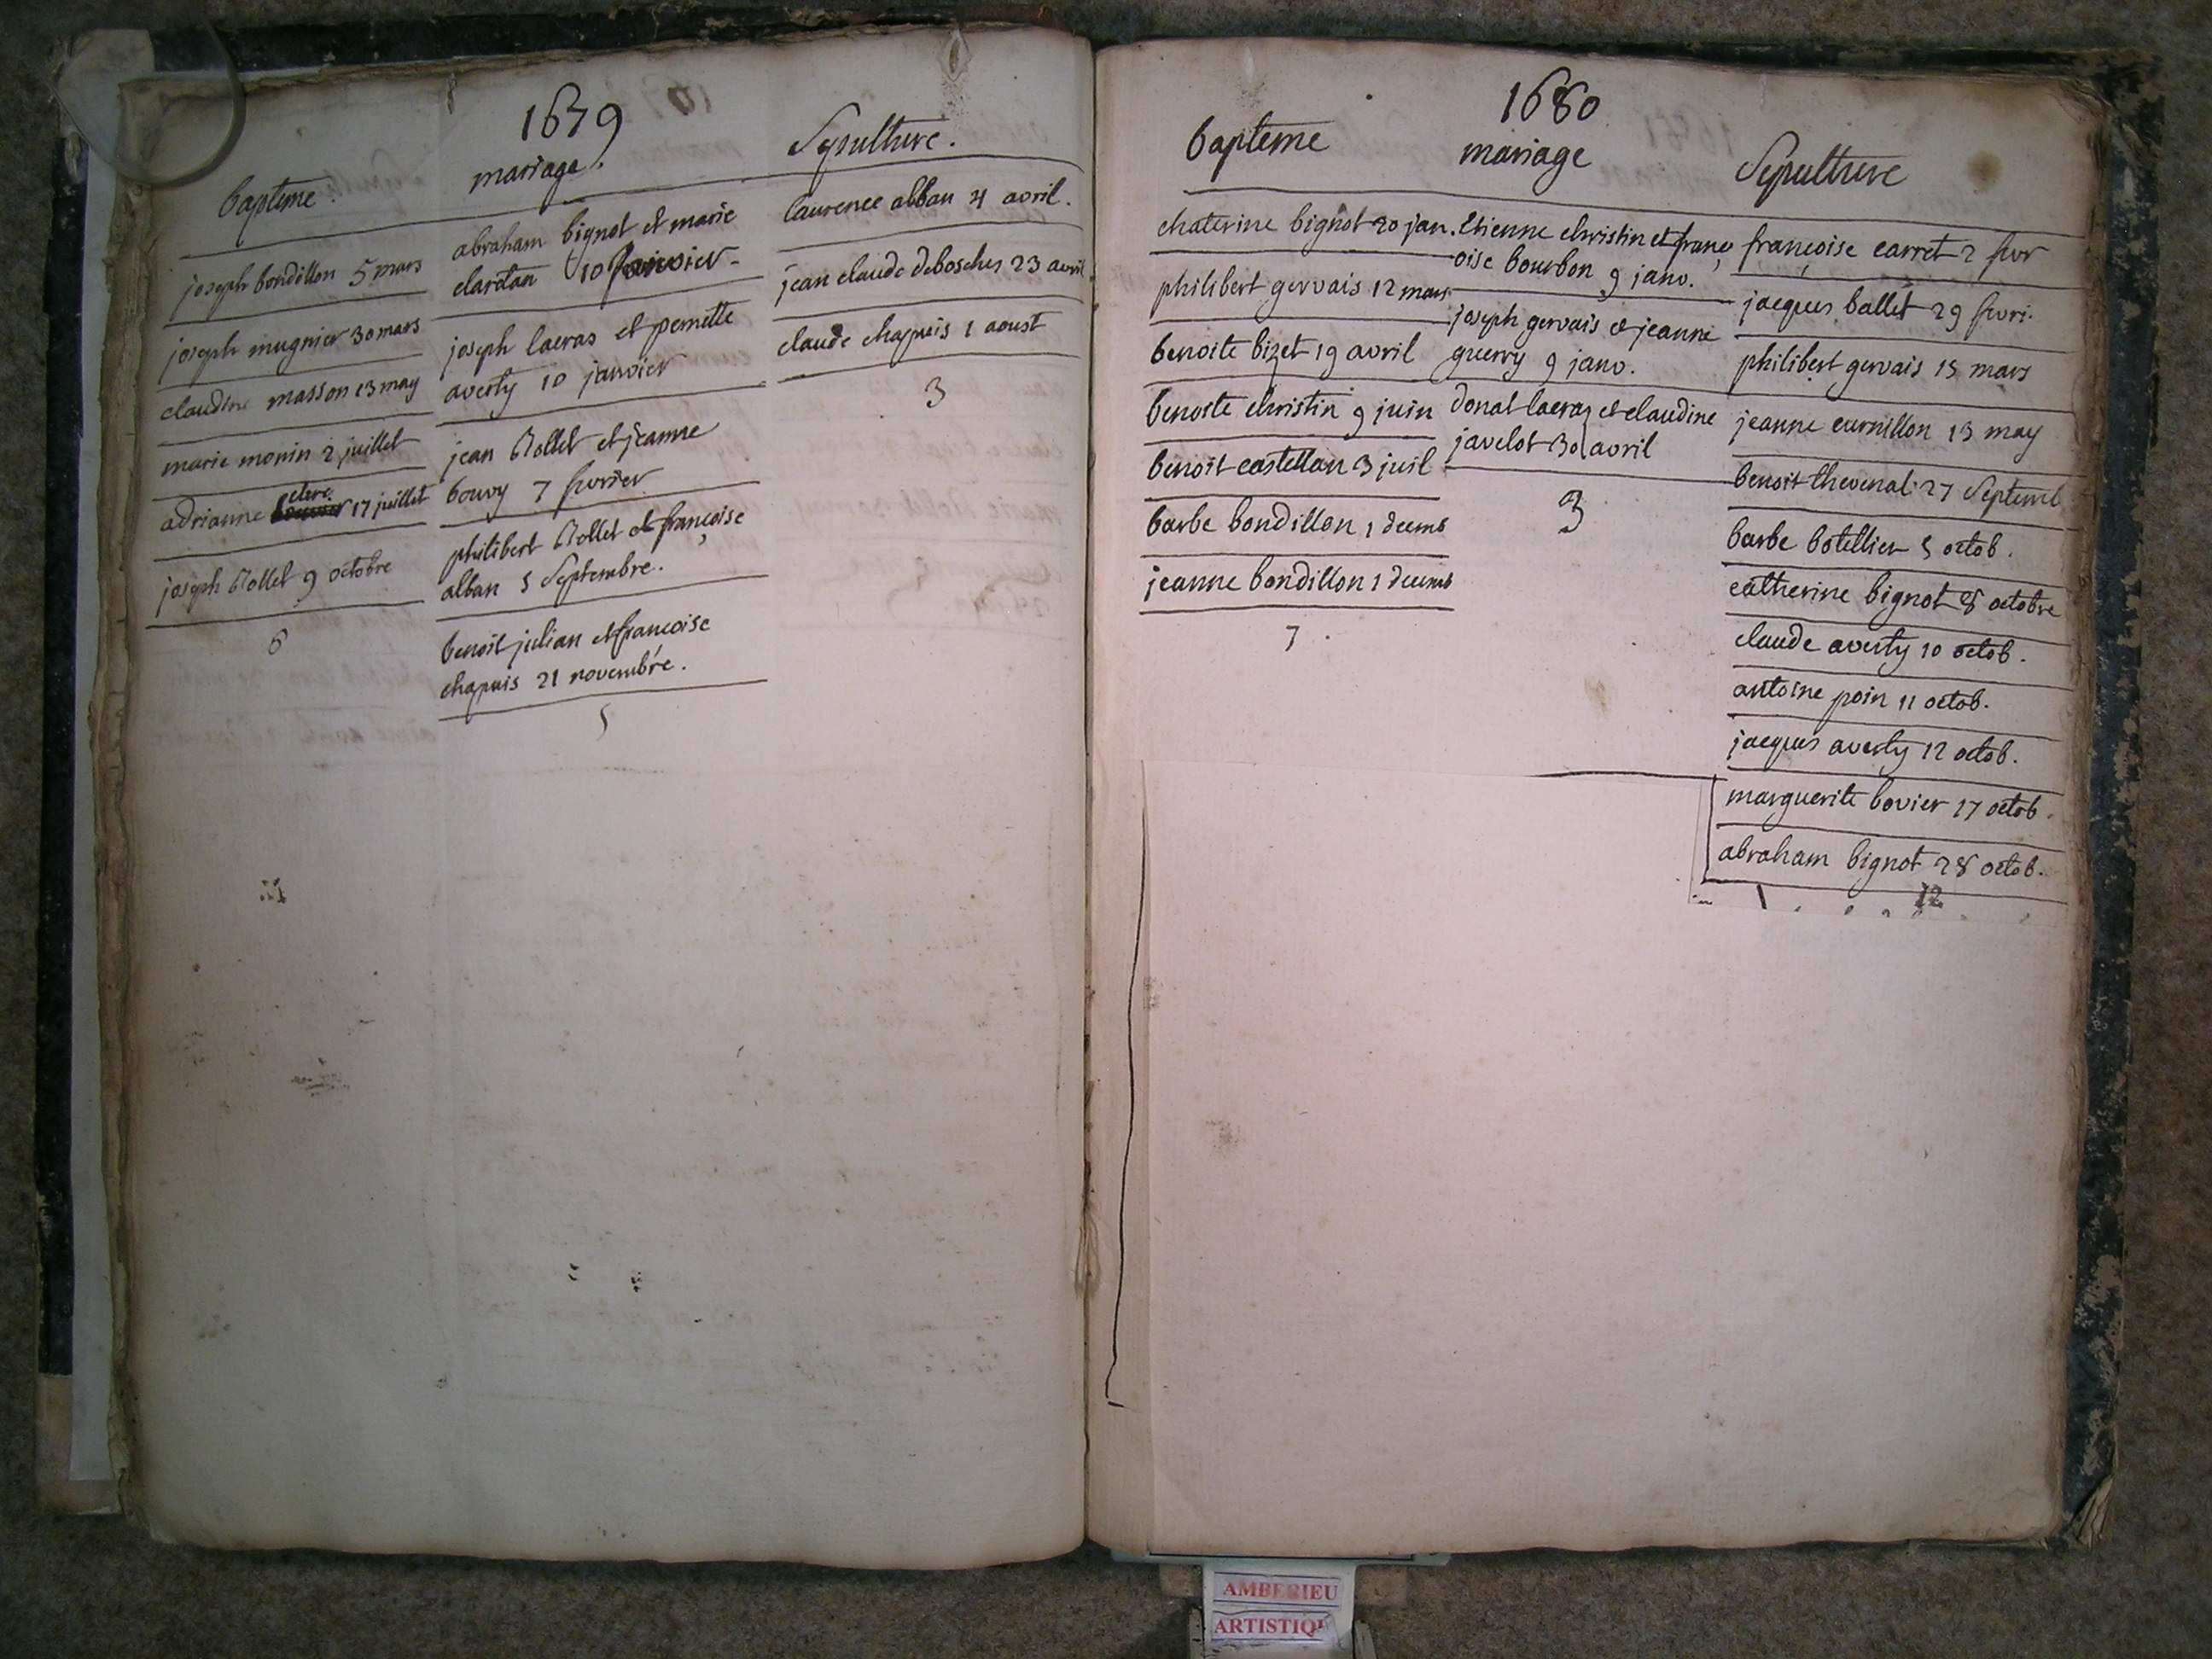 1679
bapteme.
joseph bondillon 5 mars
joseph mugnier 30 mars
claudine masson 13 may
marie monin 2 juillet
clere
adrianne 17 juillet
joseph Rollet 9 octobre
6
mariage.
abraham bignot et marie
claretan 10 janvier
joseph lacras et pernette
averty 10 janvier
jean Rollet et jeanne
bouvy 7 fevrier
philibert Rollet et françoise
alban 5 Septembre.
benoit julian et francoise
chapuis 21 novembre.
5
Sepulture.
laurence alban 4 avril.
jean claude debosches 23 avril
claude chapuis 1 aoust
3
1680
bapteme
chaterine bignot 20 jan.
philibert gervais 12 mars
benoite bizet 19 avril
benoite christin 9 juin
benoit castellan 3 juil
barbe bondillon 1 decemb
jeanne bondillon 1 decemb
7
mariage
Etienne christin et franç
oise bourbon 9 janv.
joseph gervais et jeanne
guerry 9 janv.
donat lacraz et claudine
javelot 30 avril
3
Sepulture
françoise carret 2 fevr
jacques ballet 29 fevri.
philibert gervais 15 mars
jeanne curnillon 13 may
benoit thevenat 27 Septemb
barbe botellier 5 octob.
catherine bignot 8 octobre
claude averty 10 octob.
antoine poin 11 octob.
jacques averty 12 octob.
marguerite bovier 17 octob.
abraham bignot 28 octob.
12
AMBERIEU
ARTISTIQ